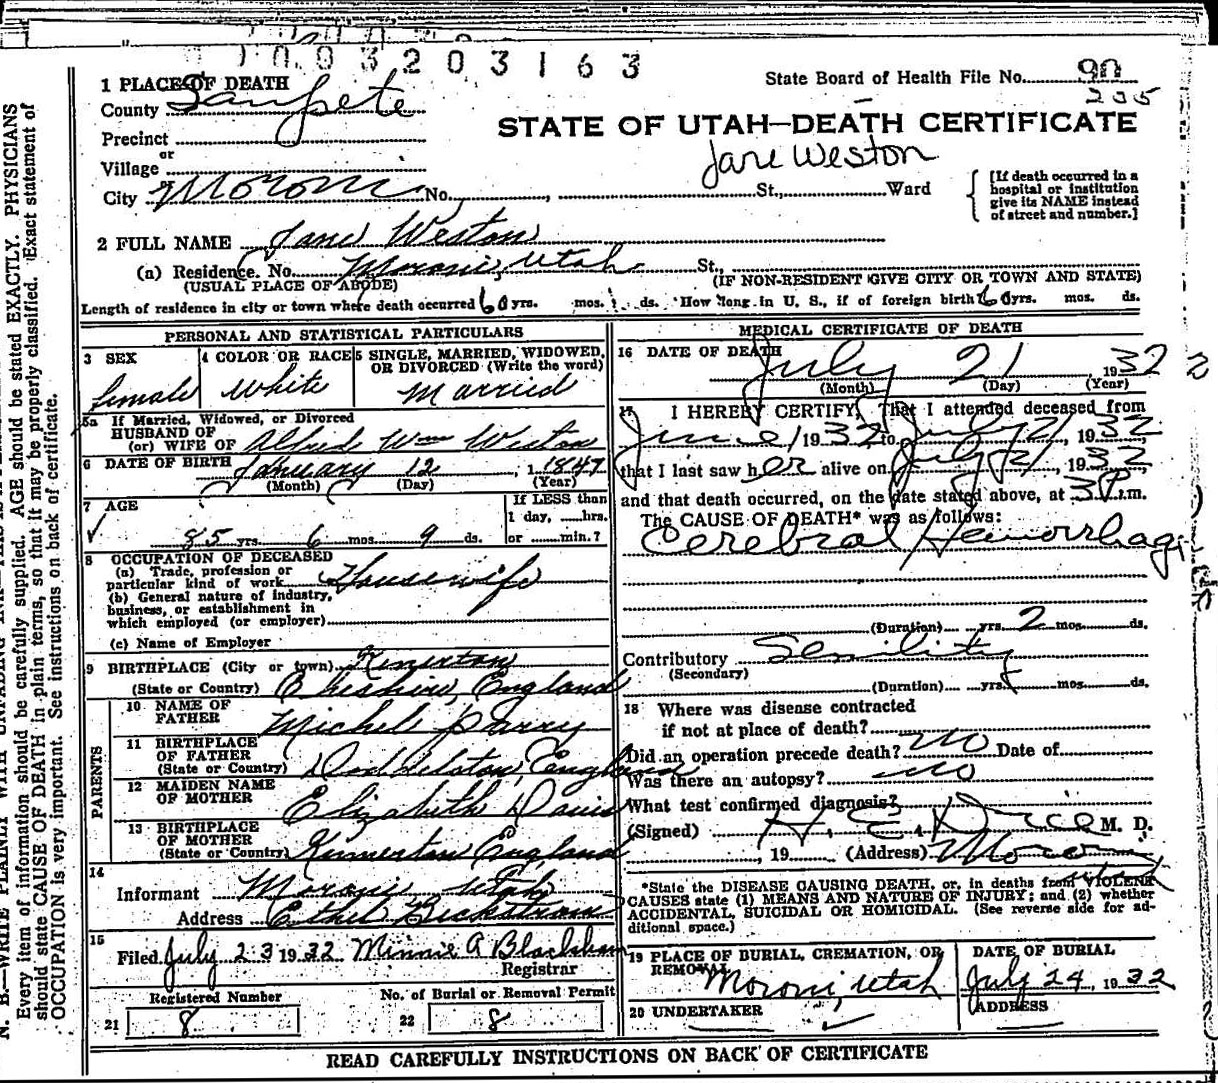 1003203163
State Board of Health File No. 90
235
STATE OF UTAH—DEATH CERTIFICATE
Jane Weston
1 PLACE OF DEATH
County Sanpete
Precinct
or
Village
City Moroni No. St., Ward
[If death occurred in a hospital or institution give its NAME instead of street and number.]
2 FULL NAME Jane Weston
(a) Residence. No. Moroni, Utah St.,
(USUAL PLACE OF ABODE) (IF NON-RESIDENT GIVE CITY OR TOWN AND STATE)
Length of residence in city or town where death occurred 60 yrs. mos. ds. How long in U. S., if of foreign birth 60 yrs. mos. ds.
PERSONAL AND STATISTICAL PARTICULARS
3 SEX 4 COLOR OR RACE 5 SINGLE, MARRIED, WIDOWED, OR DIVORCED (Write the word)
female White Married
5a If Married, Widowed, or Divorced
HUSBAND OF
(or) WIFE OF Alfred Wm Weston
6 DATE OF BIRTH January 12, 1847
(Month) (Day) (Year)
7 AGE If LESS than
1 day, ....hrs.
85 yrs. 6 mos. 9 ds. or ......min.?
8 OCCUPATION OF DECEASED
(a) Trade, profession or
particular kind of work Housewife
(b) General nature of industry,
business, or establishment in
which employed (or employer)
(c) Name of Employer
9 BIRTHPLACE (City or town) Kinerton
(State or Country) Cheshire, England
PARENTS
10 NAME OF
FATHER Michel Parry
11 BIRTHPLACE
OF FATHER
(State or Country) Doddelston, England
12 MAIDEN NAME
OF MOTHER Elizabeth Davis
13 BIRTHPLACE
OF MOTHER
(State or Country) Kinnerton England
14
Informant Moroni Utah
Address Ethel Beckstrom
15
Filed July 23 1932 Minnie A Blackham
Registrar
Registered Number No. of Burial or Removal Permit
21 8 22 8
MEDICAL CERTIFICATE OF DEATH
16 DATE OF DEATH
July 21, 1932
(Month) (Day) (Year)
17 I HEREBY CERTIFY, That I attended deceased from
June 1 1932 to July 21, 1932
that I last saw her alive on July 21, 1932
and that death occurred, on the date stated above, at 3 P.m.
The CAUSE OF DEATH* was as follows:
Cerebral Hemorrhage
(Duration) yrs. 2 mos. ds.
Contributory Senility
(Secondary)
(Duration) yrs. mos. ds.
18 Where was disease contracted
if not at place of death?
Did an operation precede death? No Date of
Was there an autopsy? No
What test confirmed diagnosis?
(Signed) H. E. Dice M. D.
, 19 (Address) Moroni
Utah
*State the DISEASE CAUSING DEATH, or, in deaths from VIOLENT
CAUSES state (1) MEANS AND NATURE OF INJURY; and (2) whether
ACCIDENTAL, SUICIDAL OR HOMICIDAL. (See reverse side for ad-
ditional space.)
19 PLACE OF BURIAL, CREMATION, OR DATE OF BURIAL
REMOVAL
Moroni, Utah July 24, 1932
20 UNDERTAKER ADDRESS
READ CAREFULLY INSTRUCTIONS ON BACK OF CERTIFICATE
N. B.—WRITE PLAINLY WITH UNFADING
Every item of information should be carefully supplied. AGE should be stated EXACTLY. PHYSICIANS
should state CAUSE OF DEATH in plain terms, so that it may be properly classified. Exact statement of
OCCUPATION is very important. See instructions on back of certificate.